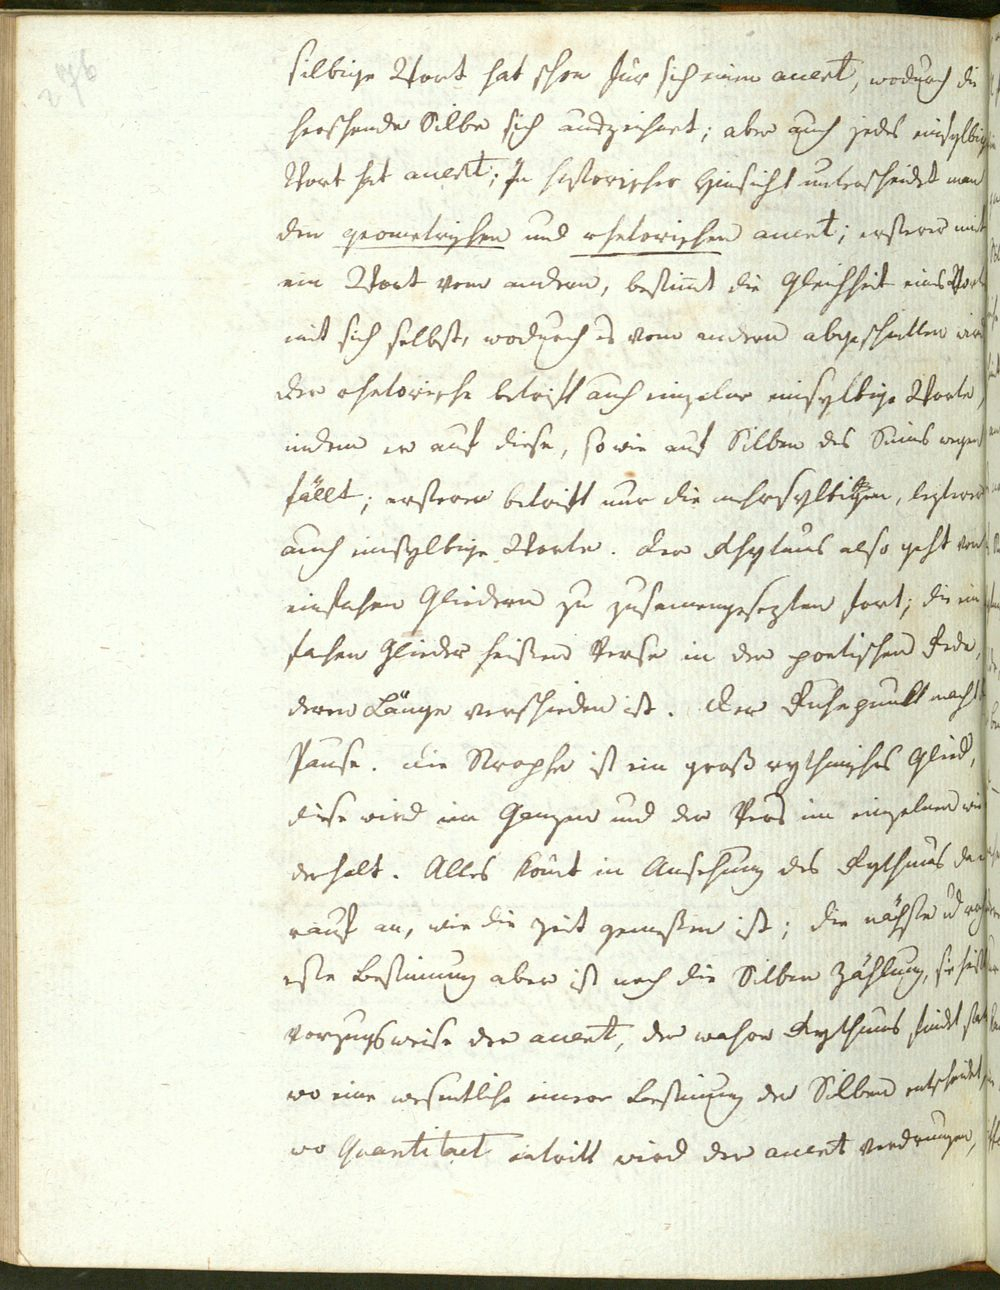 276
silbige Wort hat schon für sich einen accent, wodurch die
herschende Silbe sich auszeichnet; aber auch jedes einsylbige
Wort hat accent; In historischer Hinsicht unterscheidet man
den geometrischen und rhetorischen accent; ersterer mißt
ein Wort vom andern, bestimt die Gleichheit eines Worts
mit sich selbst, wodurch es vom andern abgeschnitten wird
der rhetorische betrift auch einzelne einsylbige Worte,
indem er auf diese, so wie auf Silben des Sinns wegen
fällt; ersterer betrift nur die mehrsylbigen, lezterer
auch einsylbige Worte. Der Rhytmus also geht von
einfachen Gliedern zu zusamengesezten fort; die ein
fachen Glieder heißen Verse in der poetischen Rede,
deren Länge verschieden ist. Der Ruhepunkt macht
Pause. Die Strophe ist ein groß rythmisches Glied,
diese wird im Ganzen und der Vers im einzelnen wie
derholt. Alles komt in Ansehung des Rythmus da
rauf an, wie die Zeit gemeßen ist; die nächste ud
erste Bestimung aber ist nach die Silben Zählung, sie heißt
vorzugsweise der accent, der wahre Rythmus findet statt
wo eine wesentliche innere Bestimung der Silben entscheidet,
wo Quantitaet eintritt wird der accent verdrungen,